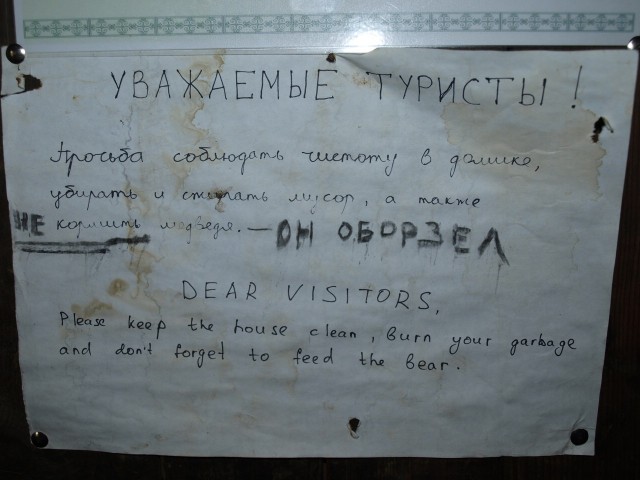 УВАЖАЕМЫЕ ТУРИСТЫ!
Просьба соблюдать чистоту в домике,
убирать и сжигать мусор, а также
НЕ кормить медведя. — ОН ОБОРЗЕЛ
DEAR VISITORS,
Please keep the house clean, burn your garbage
and don't forget to feed the bear.